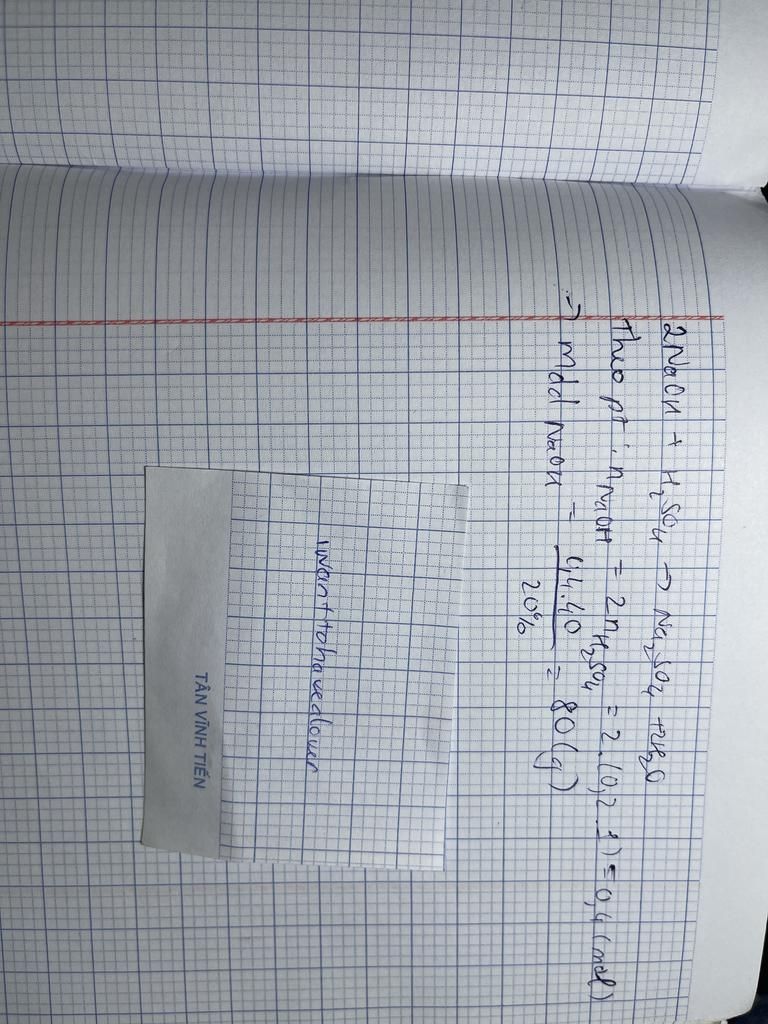 2NaOH + H₂SO₄ → Na₂SO₄ + 2H₂O
Theo pt: nNaOH = 2nH₂SO₄ = 2.(0,2.1) = 0,4 (mol)
→ mdd NaOH = 0,4.40 / 20% = 80(g)
iwanttohavealover
TÂN VĨNH TIẾN